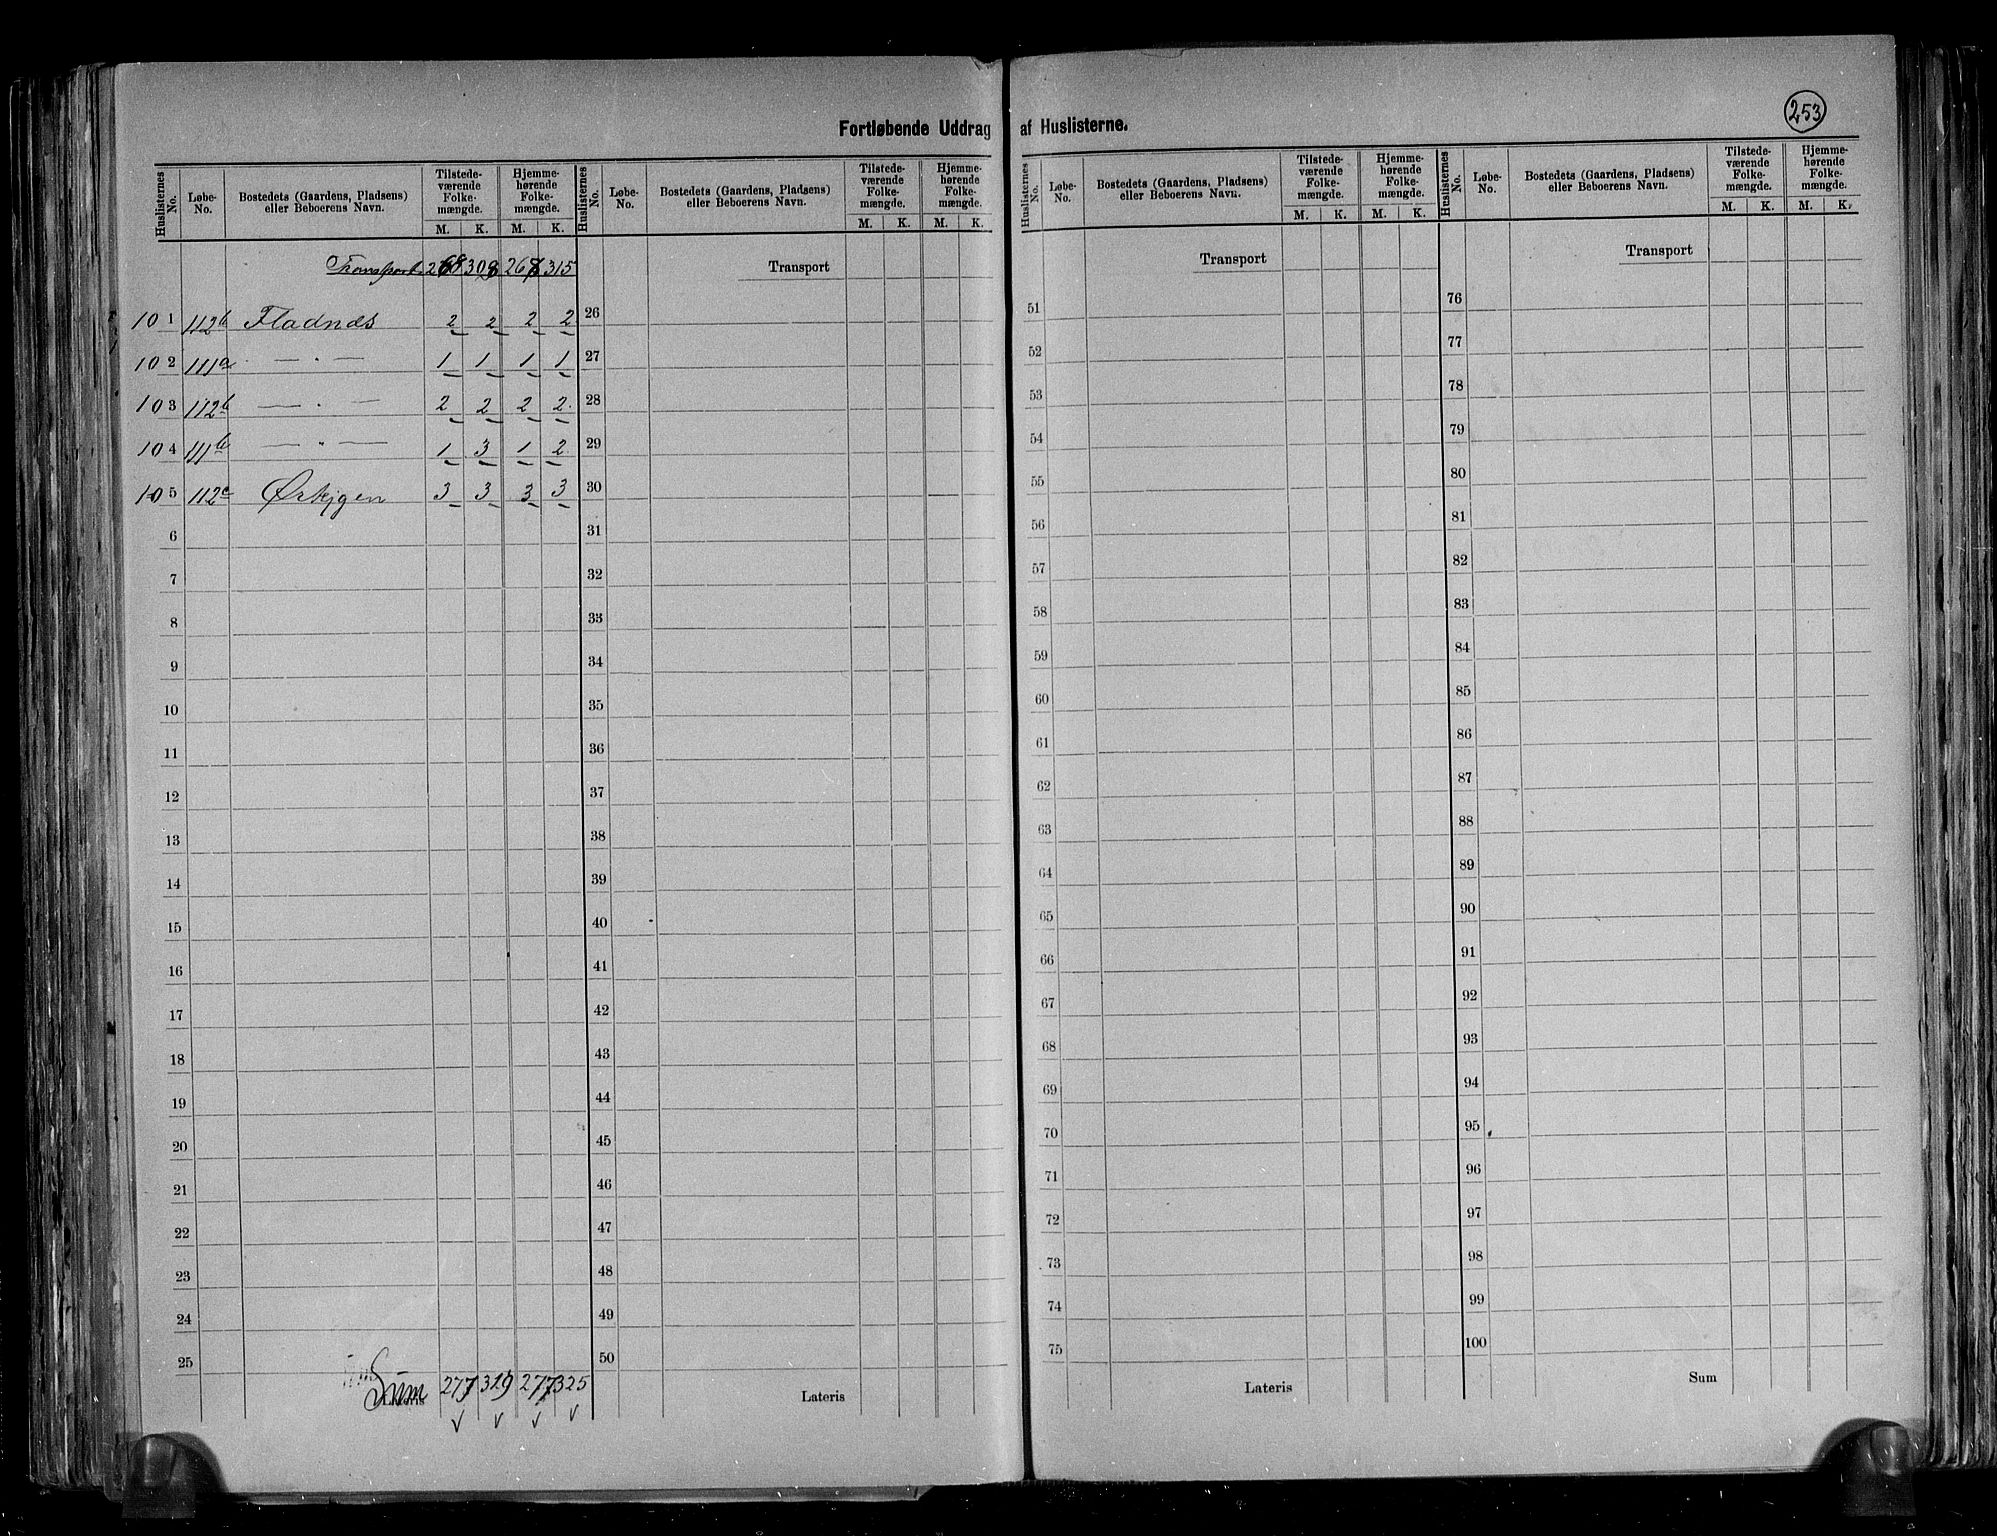 Fortløbende Uddrag af Huslisterne.
253
Huslisternes No. | Løbe-No. | Bostedets (Gaardens, Pladsens) eller Beboerens Navn. | Tilstedeværende Folkemængde. M. K. | Hjemmehørende Folkemængde. M. K.
Huslisternes No. | Løbe-No. | Bostedets (Gaardens, Pladsens) eller Beboerens Navn. | Tilstedeværende Folkemængde. M. K. | Hjemmehørende Folkemængde. M. K.
Huslisternes No. | Løbe-No. | Bostedets (Gaardens, Pladsens) eller Beboerens Navn. | Tilstedeværende Folkemængde. M. K. | Hjemmehørende Folkemængde. M. K.
Huslisternes No. | Løbe-No. | Bostedets (Gaardens, Pladsens) eller Beboerens Navn. | Tilstedeværende Folkemængde. M. K. | Hjemmehørende Folkemængde. M. K.
Transport 268 308 268 315
101 112b Fladnæs 2 2 2 2
102 111a — " — 1 1 1 1
103 112b — " — 2 2 2 2
104 111b — " — 1 3 1 2
105 112c 3 3 3 3
6
7
8
9
10
11
12
13
14
15
16
17
18
19
20
21
22
23
24
25
Lateris Sum 277 319 277 325
Transport
26
27
28
29
30
31
32
33
34
35
36
37
38
39
40
41
42
43
44
45
46
47
48
49
50
Lateris
Transport
51
52
53
54
55
56
57
58
59
60
61
62
63
64
65
66
67
68
69
70
71
72
73
74
75
Lateris
Transport
76
77
78
79
80
81
82
83
84
85
86
87
88
89
90
91
92
93
94
95
96
97
98
99
100
Sum